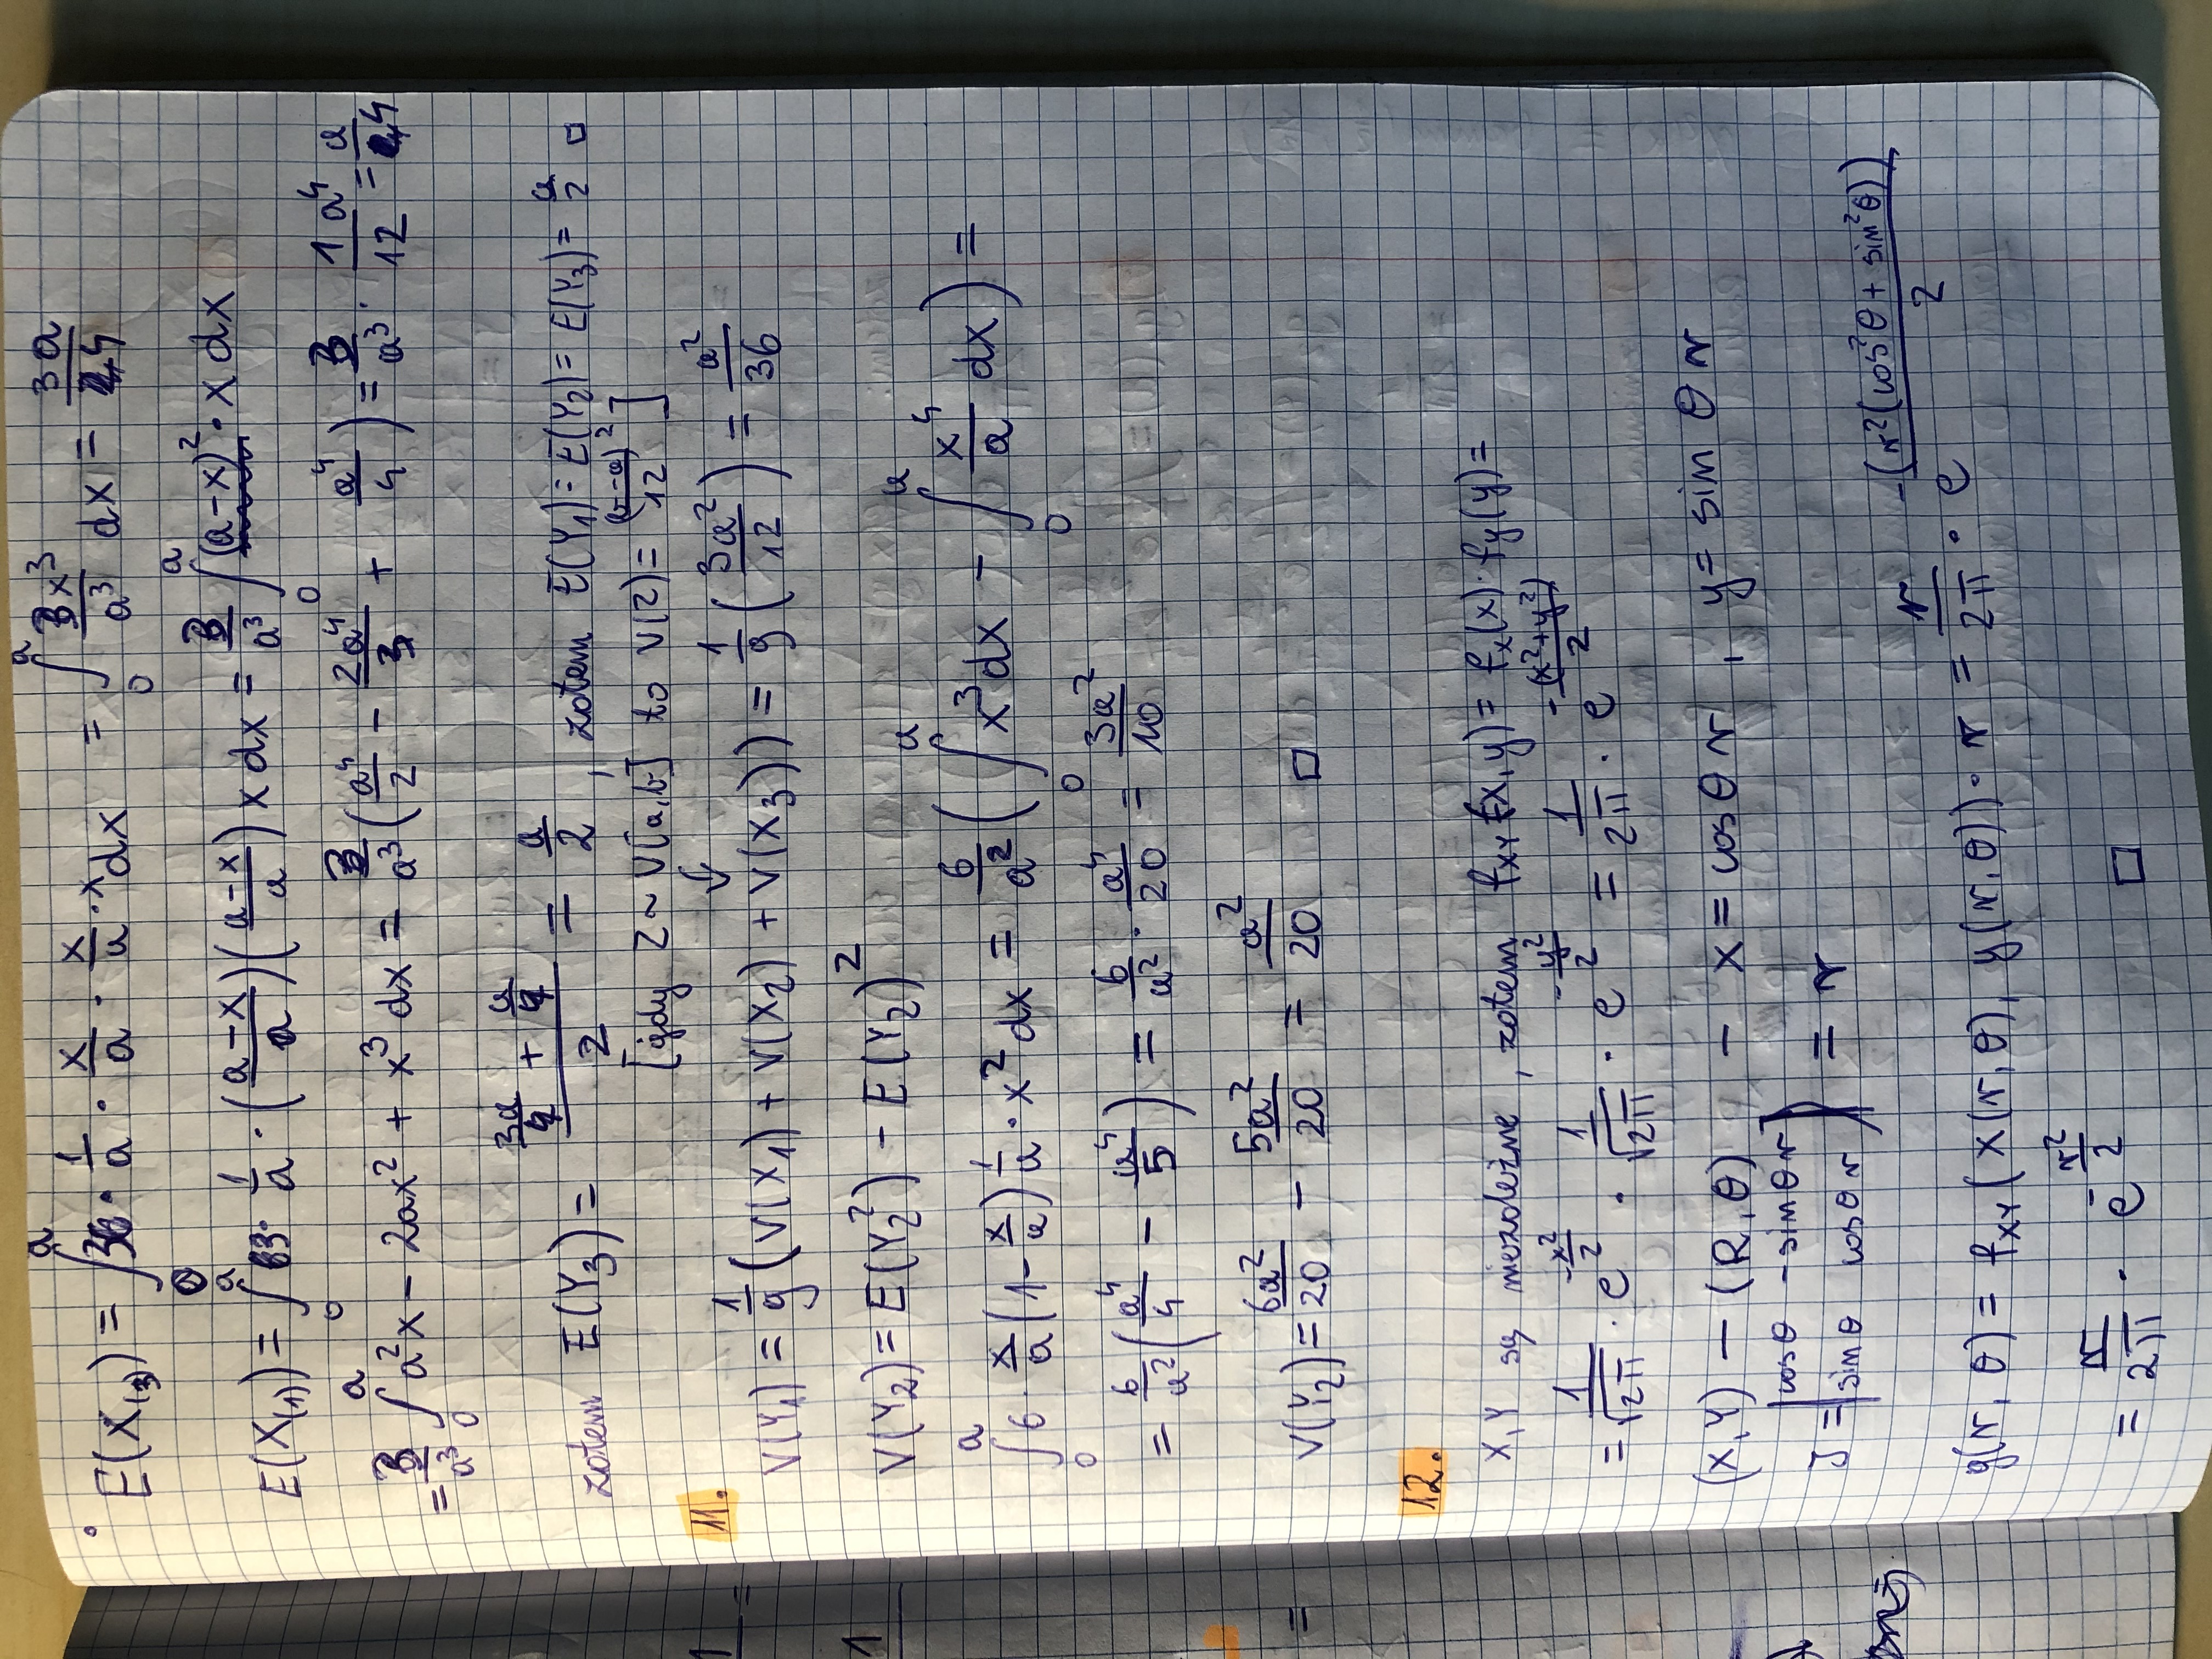 E(X₍₃₎) = ∫₀ᵃ 3 · 1/a · x/a · x/a · x dx = ∫₀ᵃ 3x³/a³ dx = 3a/4
E(X₍₁₎) = ∫₀ᵃ 3 · 1/a · ((a-x)/a)((a-x)/a) x dx = 3/a³ ∫₀ᵃ (a-x)² · x dx
= 3/a³ ∫₀ᵃ a²x - 2ax² + x³ dx = 3/a³ (a⁴/2 - 2a⁴/3 + a⁴/4) = 3/a³ · 1a⁴/12 = a/4
zatem E(Y₃) = (3a/4 + a/4)/2 = a/2 , zatem E(Y₁) = E(Y₂) = E(Y₃) = a/2 □
[gdy Z ~ U[a,b] to V(Z) = (b-a)²/12 ]
11.
V(Y₁) = 1/9 (V(X₁) + V(X₂) + V(X₃)) = 1/9 (3a²/12) = a²/36
V(Y₂) = E(Y₂²) - E(Y₂)²
∫₀ᵃ 6 · x/a (1 - x/a) 1/a · x² dx = 6/a² ( ∫₀ᵃ x³ dx - ∫₀ᵃ x⁴/a dx ) =
= 6/a² (a⁴/4 - a⁴/5) = 6/a² · a⁴/20 = 3a²/10
V(Y₂) = 6a²/20 - 5a²/20 = a²/20 □
12.
X, Y są niezależne , zatem f_XY(x, y) = f_X(x) · f_Y(y) =
= 1/√2π · e^(-x²/2) · 1/√2π · e^(-y²/2) = 1/2π · e^(-(x²+y²)/2)
(X, Y) – (R, θ) – x = cos θ r , y = sin θ r
J = |cos θ -sin θ r
sin θ cos θ r| = r
g(r, θ) = f_XY(x(r, θ), y(r, θ)) · r = r/2π · e^(-(r²(cos²θ + sin²θ))/2)
= r/2π · e^(-r²/2) □